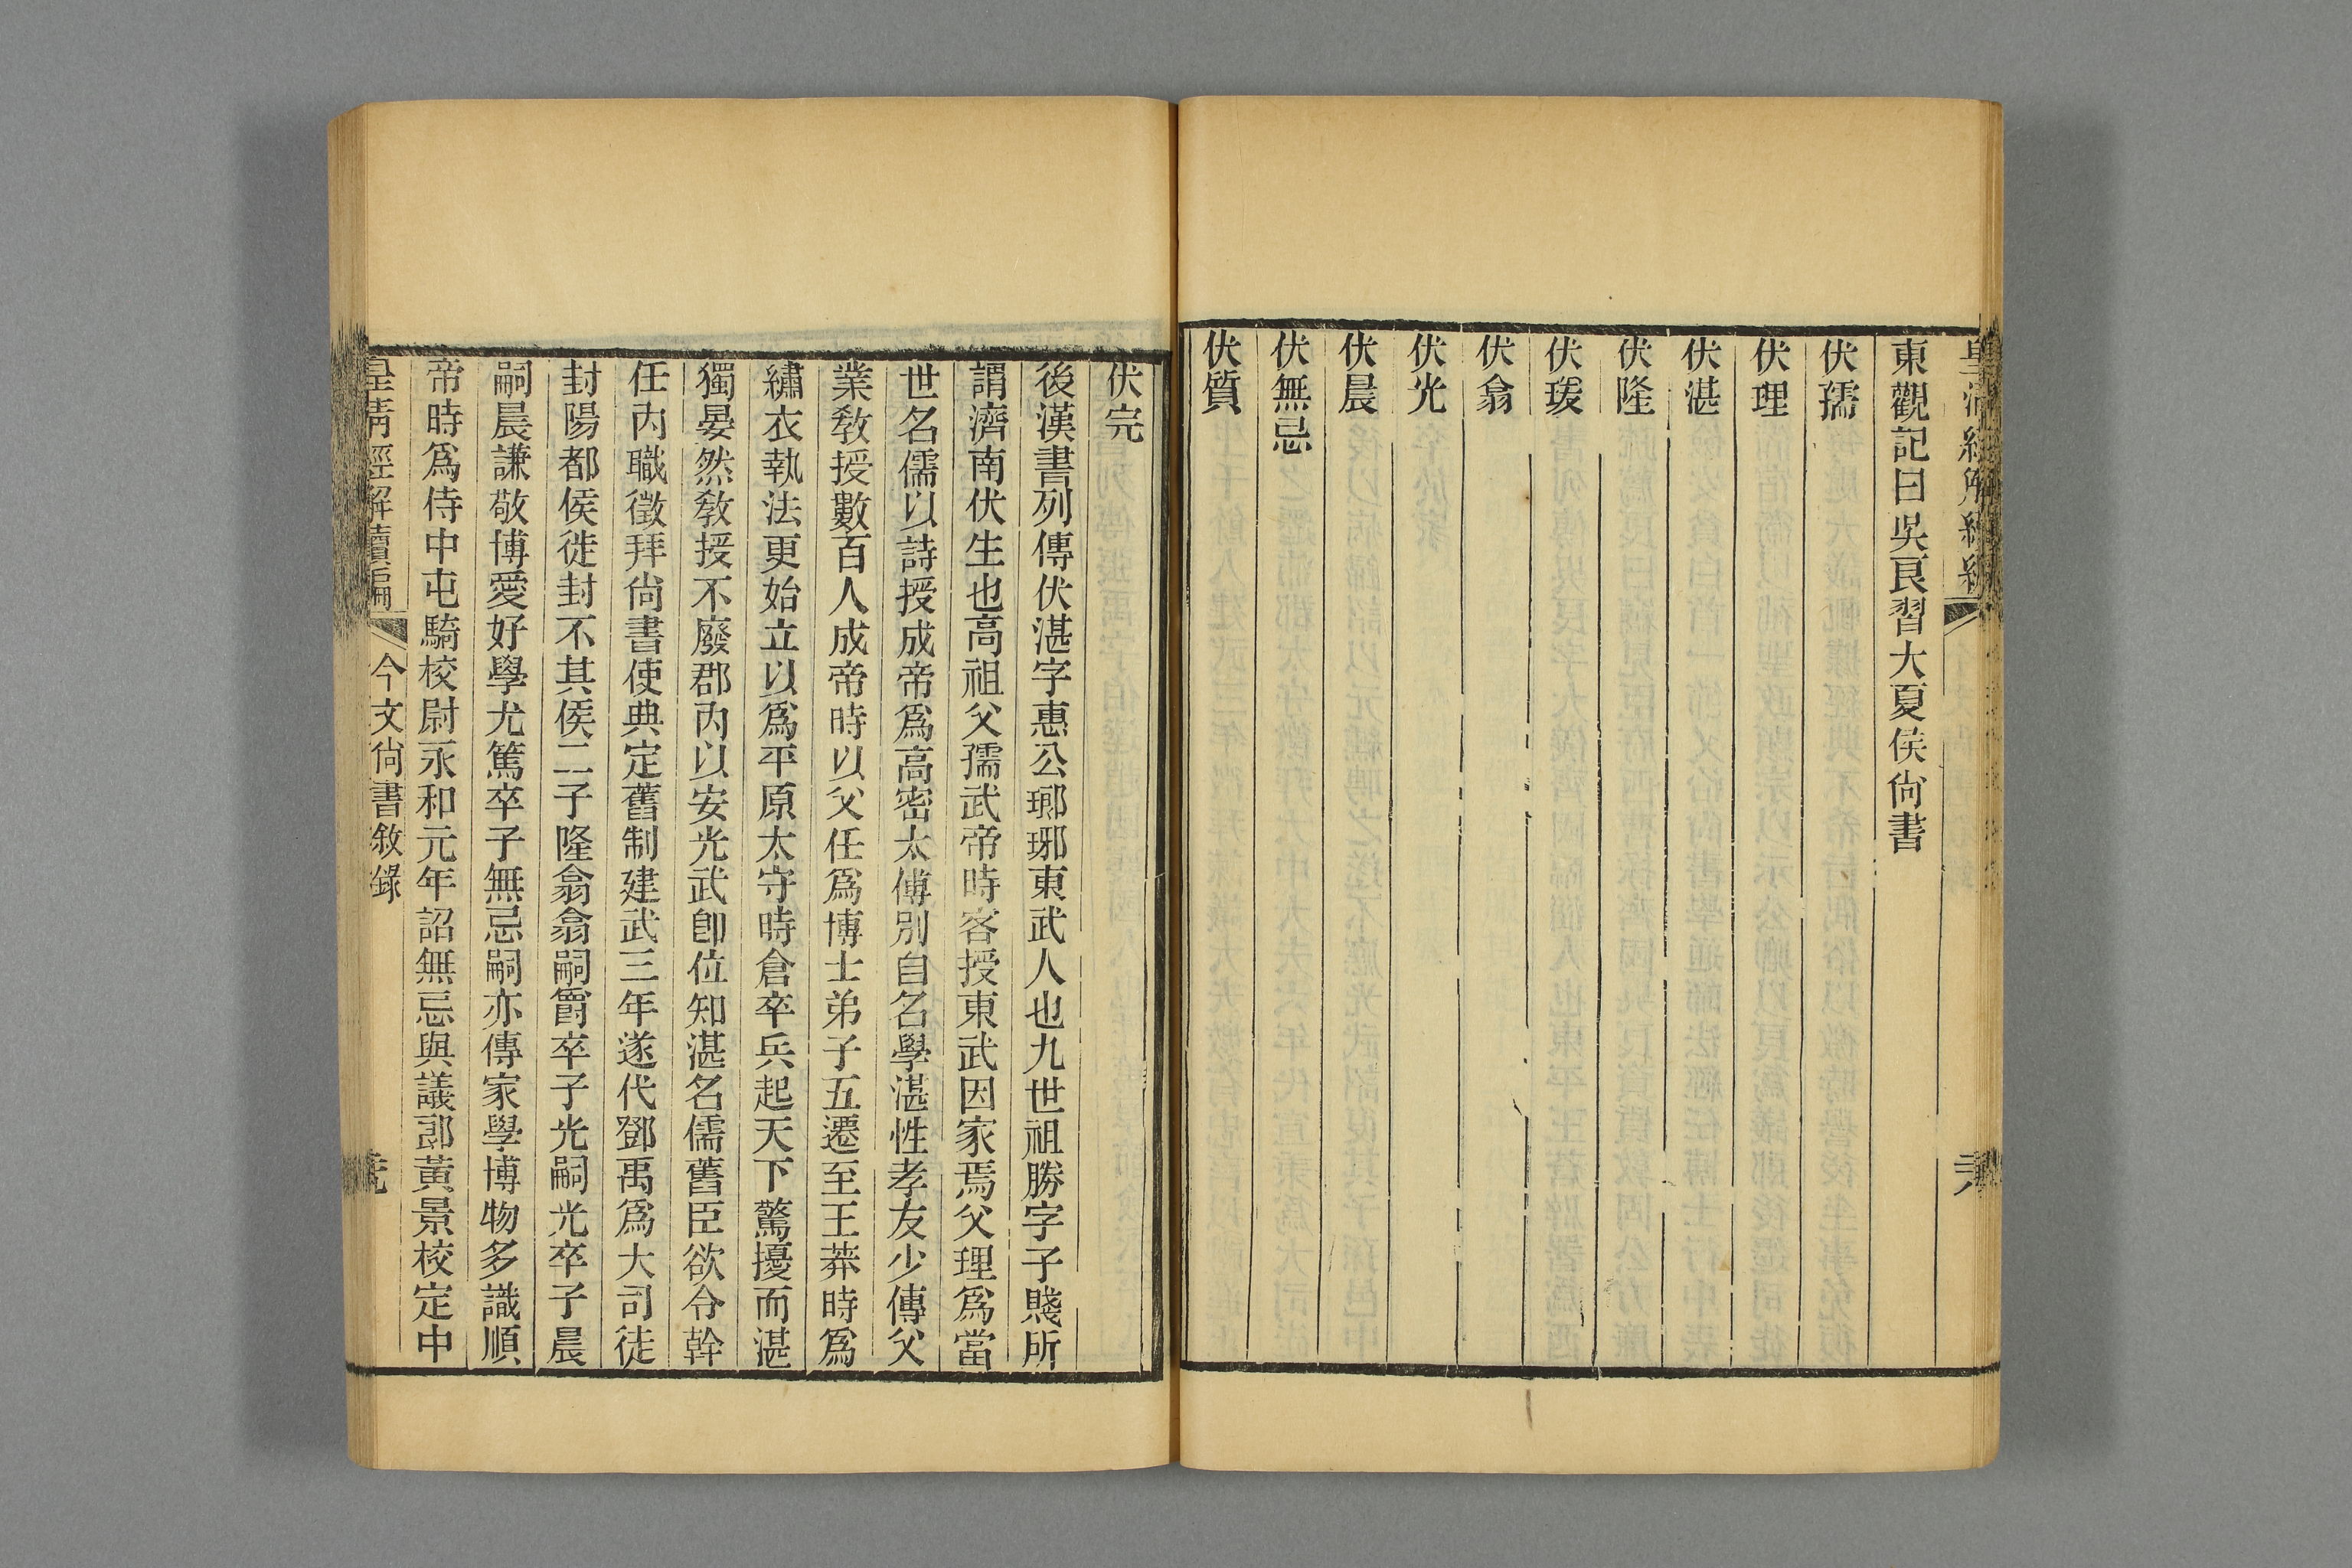 東觀記曰吳良習大夏侯尙書
伏孺
伏理
伏湛
伏隆
伏瑗
伏翕
伏光
伏晨
伏無忌
伏質
伏完
後漢書列傳伏湛字惠公瑯琊東武人也九世祖勝字子賤所
謂濟南伏生也高祖父孺武帝時客授東武因家焉父理爲當
世名儒以詩授成帝爲高密太傅別自名學湛性孝友少傳父
業敎授數百人成帝時以父任爲博士弟子五遷至王莽時爲
繡衣執法更始立以爲平原太守時倉卒兵起天下驚擾而湛
獨晏然敎授不廢郡內以安光武卽位知湛名儒舊臣欲令幹
任內職徵拜尙書使典定舊制建武三年遂代鄧禹爲大司徒
封陽都侯徙封不其侯二子隆翕翕嗣爵卒子光嗣光卒子晨
嗣晨謙敬博愛好學尤篤卒子無忌嗣亦傳家學博物多識順
帝時爲侍中屯騎校尉永和元年詔無忌與議郞黃景校定中
皇淸經解續編 今文尙書敘錄